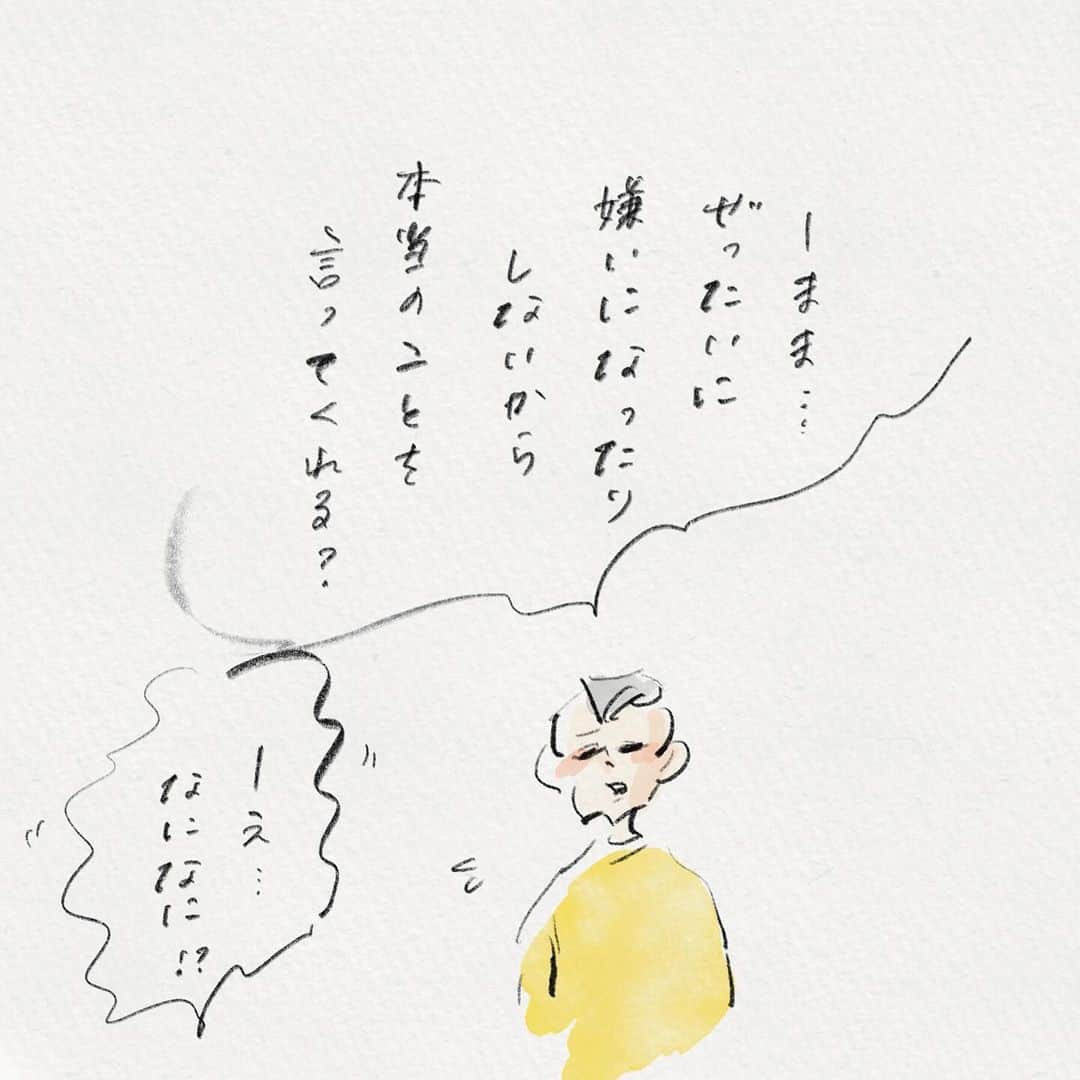 ーまま…
ぜったいに
嫌いになったり
しないから
本当のことを
言ってくれる?
ーえ…
なになに!?